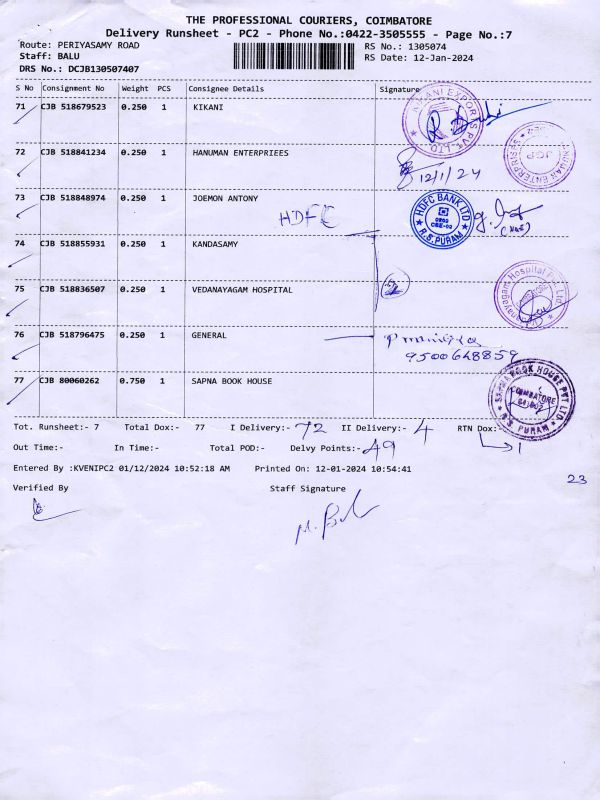 THE PROFESSIONAL COURIERS, COIMBATORE
Delivery Runsheet - PC2 - Phone No.:0422-3505555 - Page No.:7
Route: PERIYASAMY ROAD RS No.: 1305074
Staff: BALU RS Date: 12-Jan-2024
DRS No.: DCJB130507407
S No Consignment No Weight PCS Consignee Details Signature
71 CJB 518679523 0.250 1 KIKANI
KIKANI EXPORTS PVT. LTD.
72 CJB 518841234 0.250 1 HANUMAN ENTERPRIEES
12/1/24
JGP
73 CJB 518848974 0.250 1 JOEMON ANTONY
HDFC
HDFC BANK LTD
R.S. PURAM
74 CJB 518855931 0.250 1 KANDASAMY
75 CJB 518836507 0.250 1 VEDANAYAGAM HOSPITAL
76 CJB 518796475 0.250 1 GENERAL
9500648859
77 CJB 80060262 0.750 1 SAPNA BOOK HOUSE
SAPNA BOOK HOUSE PVT LTD
COIMBATORE
R.S. PURAM
Tot. Runsheet:- 7 Total Dox:- 77 I Delivery:- 72 II Delivery:- 4 RTN Dox:- 1
Out Time:- In Time:- Total POD:- Delvy Points:- 49
Entered By :KVENIPC2 01/12/2024 10:52:18 AM Printed On: 12-01-2024 10:54:41
23
Verified By Staff Signature